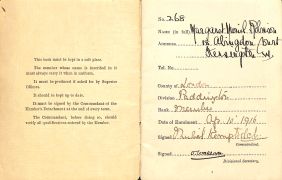 This book must be kept in a safe place.
The member whose name is inscribed in it must always carry it when in uniform.
It must be produced if asked for by Superior Officers.
It should be kept up to date.
It must be signed by the Commandant of the Member's Detachment at the end of every term.
The Commandant, before doing so, should verify all qualifications entered by the Member.
No. 268
Name (in full) Margaret
Address 1 Abingdon Court
Kensington W.
Tel. No.
County of London
Division Paddington
Rank Member
Date of Enrolment Apr. 10. 1916
Signed
Commandant.
Signed
Divisional Secretary.